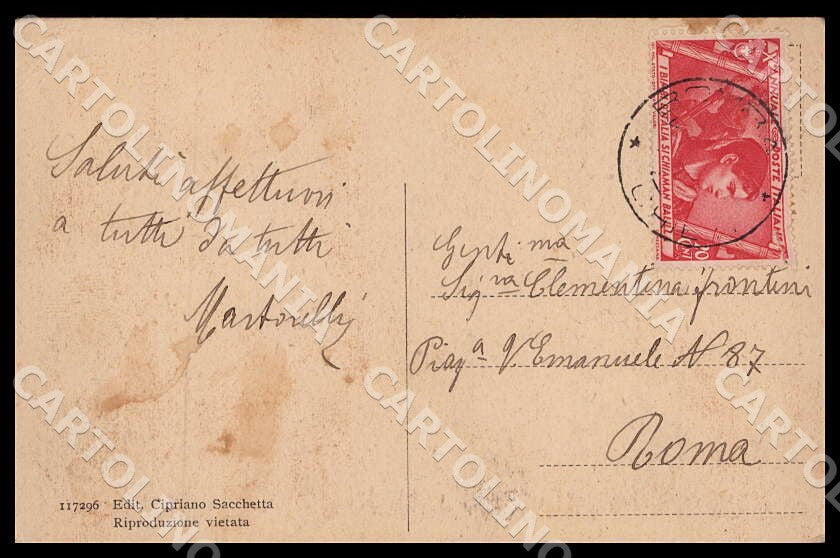 Saluti affettuosi
a tutti da tutti
Martorelli
117296 Edit. Cipriano Sacchetta
Riproduzione vietata
X ANNUALE POSTE ITALIANE
I BIMBI D'ITALIA SI CHIAMAN BALILLA
20
Genti.ma
Sig.ra Clementina Frontini
Piaz.a V. Emanuele N 87
Roma
CARTOLINOMANIA
CARTOLINOMANIA
CARTOLINOMANIA
CARTOLINOMANIA
CARTOLINOMANIA
CARTOLINOMANIA